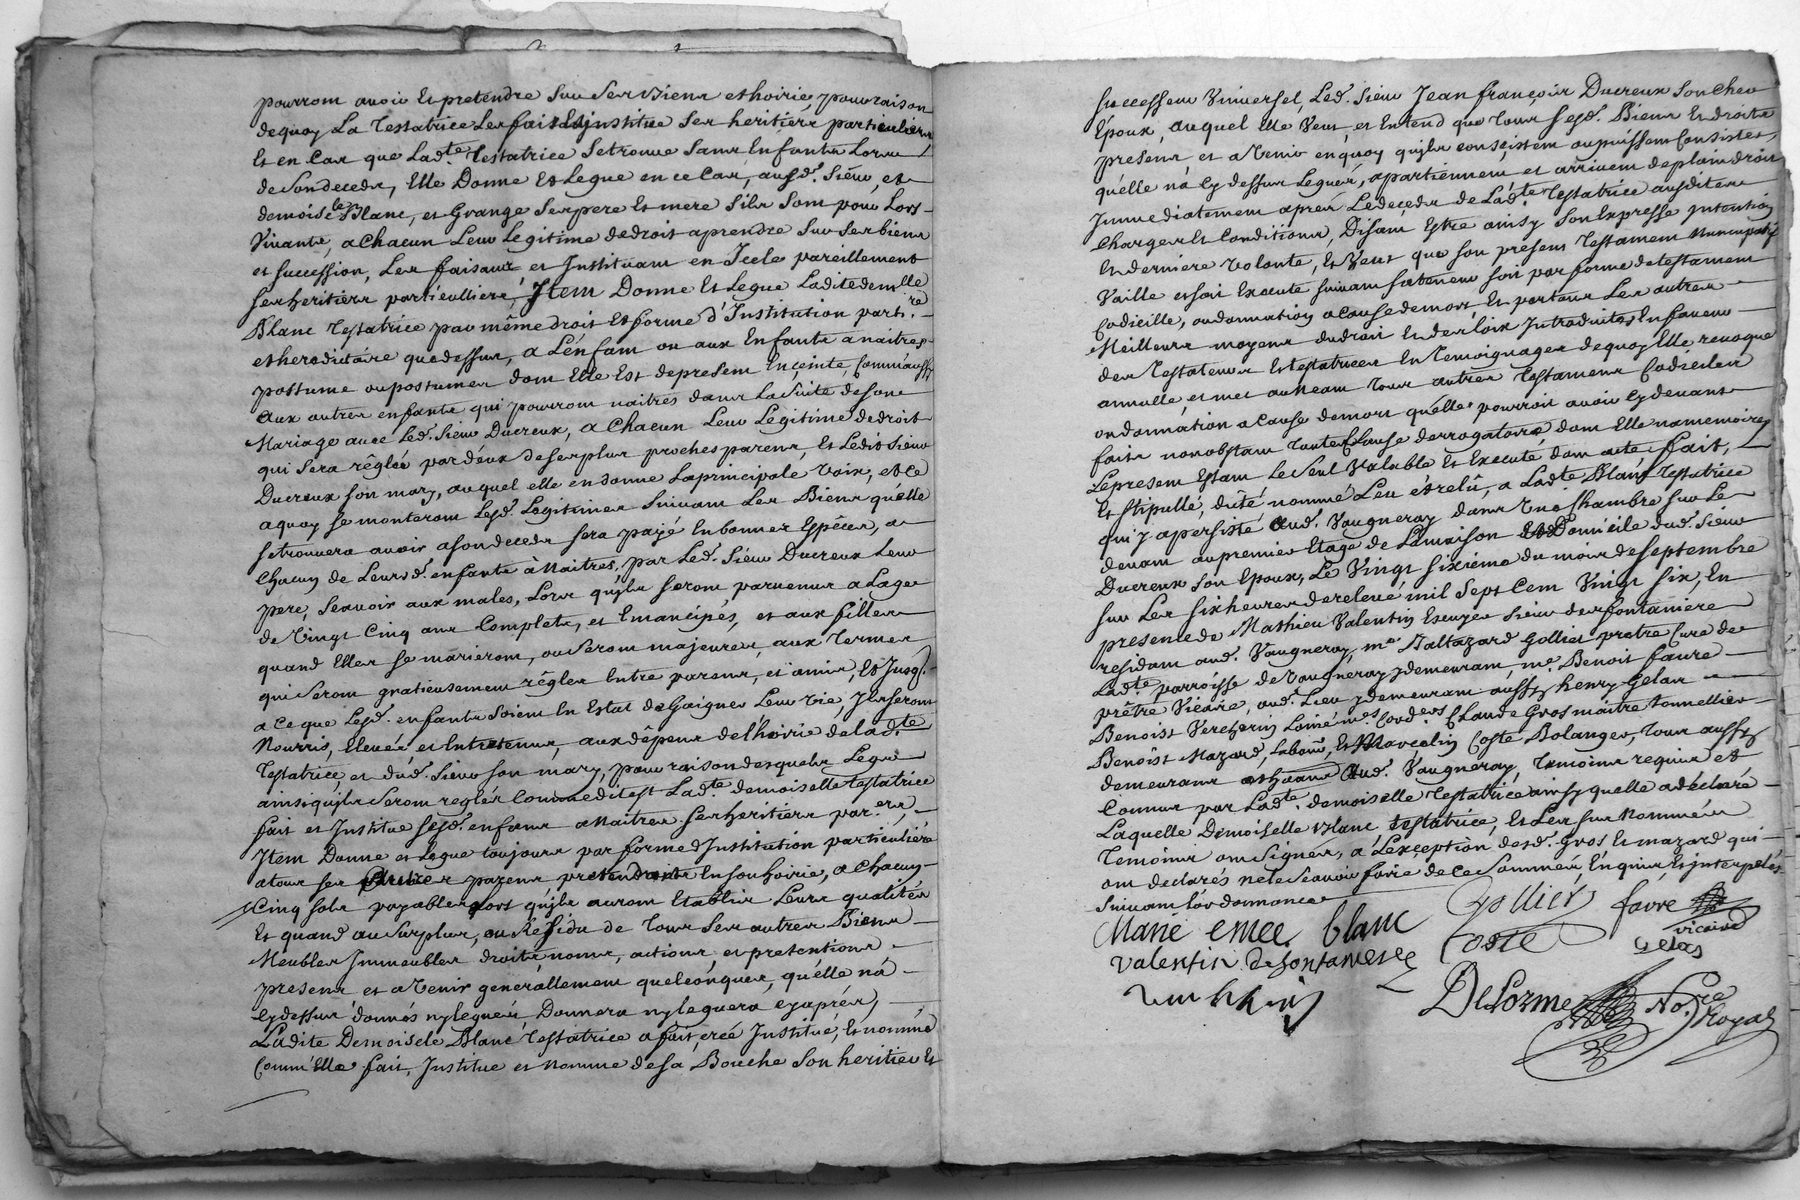 pourront avoir Et pretendre Sur Ses Biens et hoirie, pour raison
dequoy La Testatrice Les fait Et Jnstitue Ses heritiers particuliers
Et en Cas que Lad.te Testatrice Se trouve Sans Enfants Lors
de Son deceds, Elle Donne Et Legue en ce Cas, ausd.s Sieur, et
demoiselle Blanc, et Grange Ses pere Et mere S'ils Sont pour Lors
Vivants, a Chacun Leur Legitime de droit a prendre Sur Ses biens
et Succession, Les faisant et Jnstituant en Jcele pareillement
Ses heritiers particulliers, Jtem Donne Et Legue Ladite dem.lle
Blanc Testatrice par même droit Et forme d'Jnstitution parti.re
et herediétaire que dessus, a L'enfant ou aux Enfants a naitres
posttume ou postumes dont Elle Est de present Enceinte, Comm'aussy
Aux autres enfants qui pourront naitres dans La Suite de Son
Mariage avec Led. Sieur Ducreux, a Chacun Leur Legitime de droit
qui Sera réglée par déux de Ses plus proches parens, Et Ledit Sieur
Ducreux Son mary, auquel elle en donne La principale Voix, et ce
a quoy Se monteront Lesd. Legitimes Suivant Les Biens qu'elle
Se trouvera avoir a Son deceds Sera payé En bonnes Espêces, a
Chacun de Leursd. enfants à Naitres, par Led. Sieur Ducreux Leur
pere, Scavoir aux males, Lors qu'jls Seront parvenus a L'age
de Vingt Cinq ans Complets, et Emancipés, et aux filles
quand Elles Se marieront, ou Seront majeures, aux Termes
qui Seront gratieusement réglés Entre parens, et amis, Et Jusq.
a Ce que Lesd. enfants Soient En Estat de Gaigner Leur Vie, Jls Seront
Nourris, Elevés et Entretenus, aux dêpens de L'hoirie de Lad.te
Testatrice, et dud. Sieur Son mary, pour raison desquels Legs
ainsi qu'jls Seront reglés Comme dit est Lad.te demoiselle testatrice
fait et Jnstitue Sesd. enfans a Naitres Ses heritiers par.ers,
Jtem Donne et Legue toujours par forme d'Jnstitution particuliére
a tous Ses autres parens pretendants En Son hoirie, a Chacun
Cinq Sols payables Lors qu'jls auront Etablis Leurs qualités
Et quand au Surplus, ou Residu de Tous Ses autres Biens
Meubles Jmmeubles droits, noms, actions et pretentions
presens et a Venir generallement quelconques, qu'elle n'a
Cy dessus donnés ny legués, Donnera ny leguera cy aprés,
Ladite Demoisele Blanc Testatrice a fait, creé Jnstitué, Et nommé
Comm'Elle fait, Jnstitue et Nomme de Sa Bouche Son heritier Et
Successeur Vniversel, Led. Sieur Jean françois Ducreux Son Cher
Epoux, auquel Elle Veut, et Entend que Tous Sesd. Biens Et droits
presens et a Venir en quoy qu'jls consistent ou puissent Consister,
qu'elle n'a Cy dessus Legués, apartiennent et arrivent de plain droit
Jmmediatement aprés Le deceds de Lad.te Testatrice ausdites
Charges Et Conditions, Disant Estre ainsy Son Expresse Jntention
Et derniere Volonté, Et Veut que Son present Testament Nuncupatif
Vaille et Soit Executé Suivant Sa teneur Soit par forme de testament
Codicille, ou donnation a cause de mort, Et par tous Les autres
Meilleurs moyens du droit Et des Loix Jntroduites En faveur
des Testateurs Et testatrices En Temoignage de quoy Elle revoque
annulle, et met au Neant tous autres Testamens Codicilles
ou donnation a Cause de mort qu'elle pourroit avoir Cy devant
faits nonobstant toutes Clause derrogatoires dont Elle na memoires
Le present Estant Le Seul Valable Et Executé, dont acte, fait,
Et Stipullé, dicté nommé Leu et relû, a Lad.te Blanc Testatrice
qui y a persisté Aud. Vaugneray dans Vne Chambre Sur Le
devant au premier Etage de La maison Et Domicile dud. Sieur
Ducreux Son Epoux, Le Vingt Sixieme du mois de Septembre
Sur Les Six heures de relevé mil Sept Cent Vingt Six, En
presence de Mathieu Valentin Escuyer Sieur des fontanieres
residant aud. Vaugneray, m.re Baltazard Gollier pretre Curé de
Lad.te parroisse de Vaugneray y demeurant, m.e Benoit faure
prêtre Vicaire, aud. Lieu y demeurant aussy henry Gelas
Benoist Vercherin Lainé m.e Cord.er Claude Gros maitre tonnellier
Benoist Mazard, Labour, Et Marcelin Coste Bolanger, tous aussy
demeurans Aud. Vaugneray, temoins requis et
Connus par Lad.te demoiselle Testatrice ainsy quelle a déclaré
Laquelle Demoiselle Blanc testatrice, Et Les Sus Nommés
Temoins ont Signés, a L'exception desd. Gros Et mazard qui
ont declarés ne le Scavoir faire de Ce Sommés, Enquis, Et jnterpelés
Suivant L'ordonnance
Marie emee blanc Gollier favre
vicaire
valentin defontaniere Coste Gelas
Delorme No.re
royal